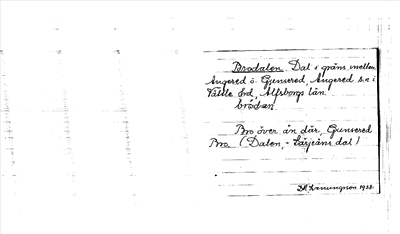 Brodalen. Dal i gräns mellan
Angered o. Gunnered, Angered sn i
Vättle hd, Älfsborgs län.
brodæn
Bro över ån där, Gunnered
Bro (Dalen, = Lärjeåns dal)
1938.